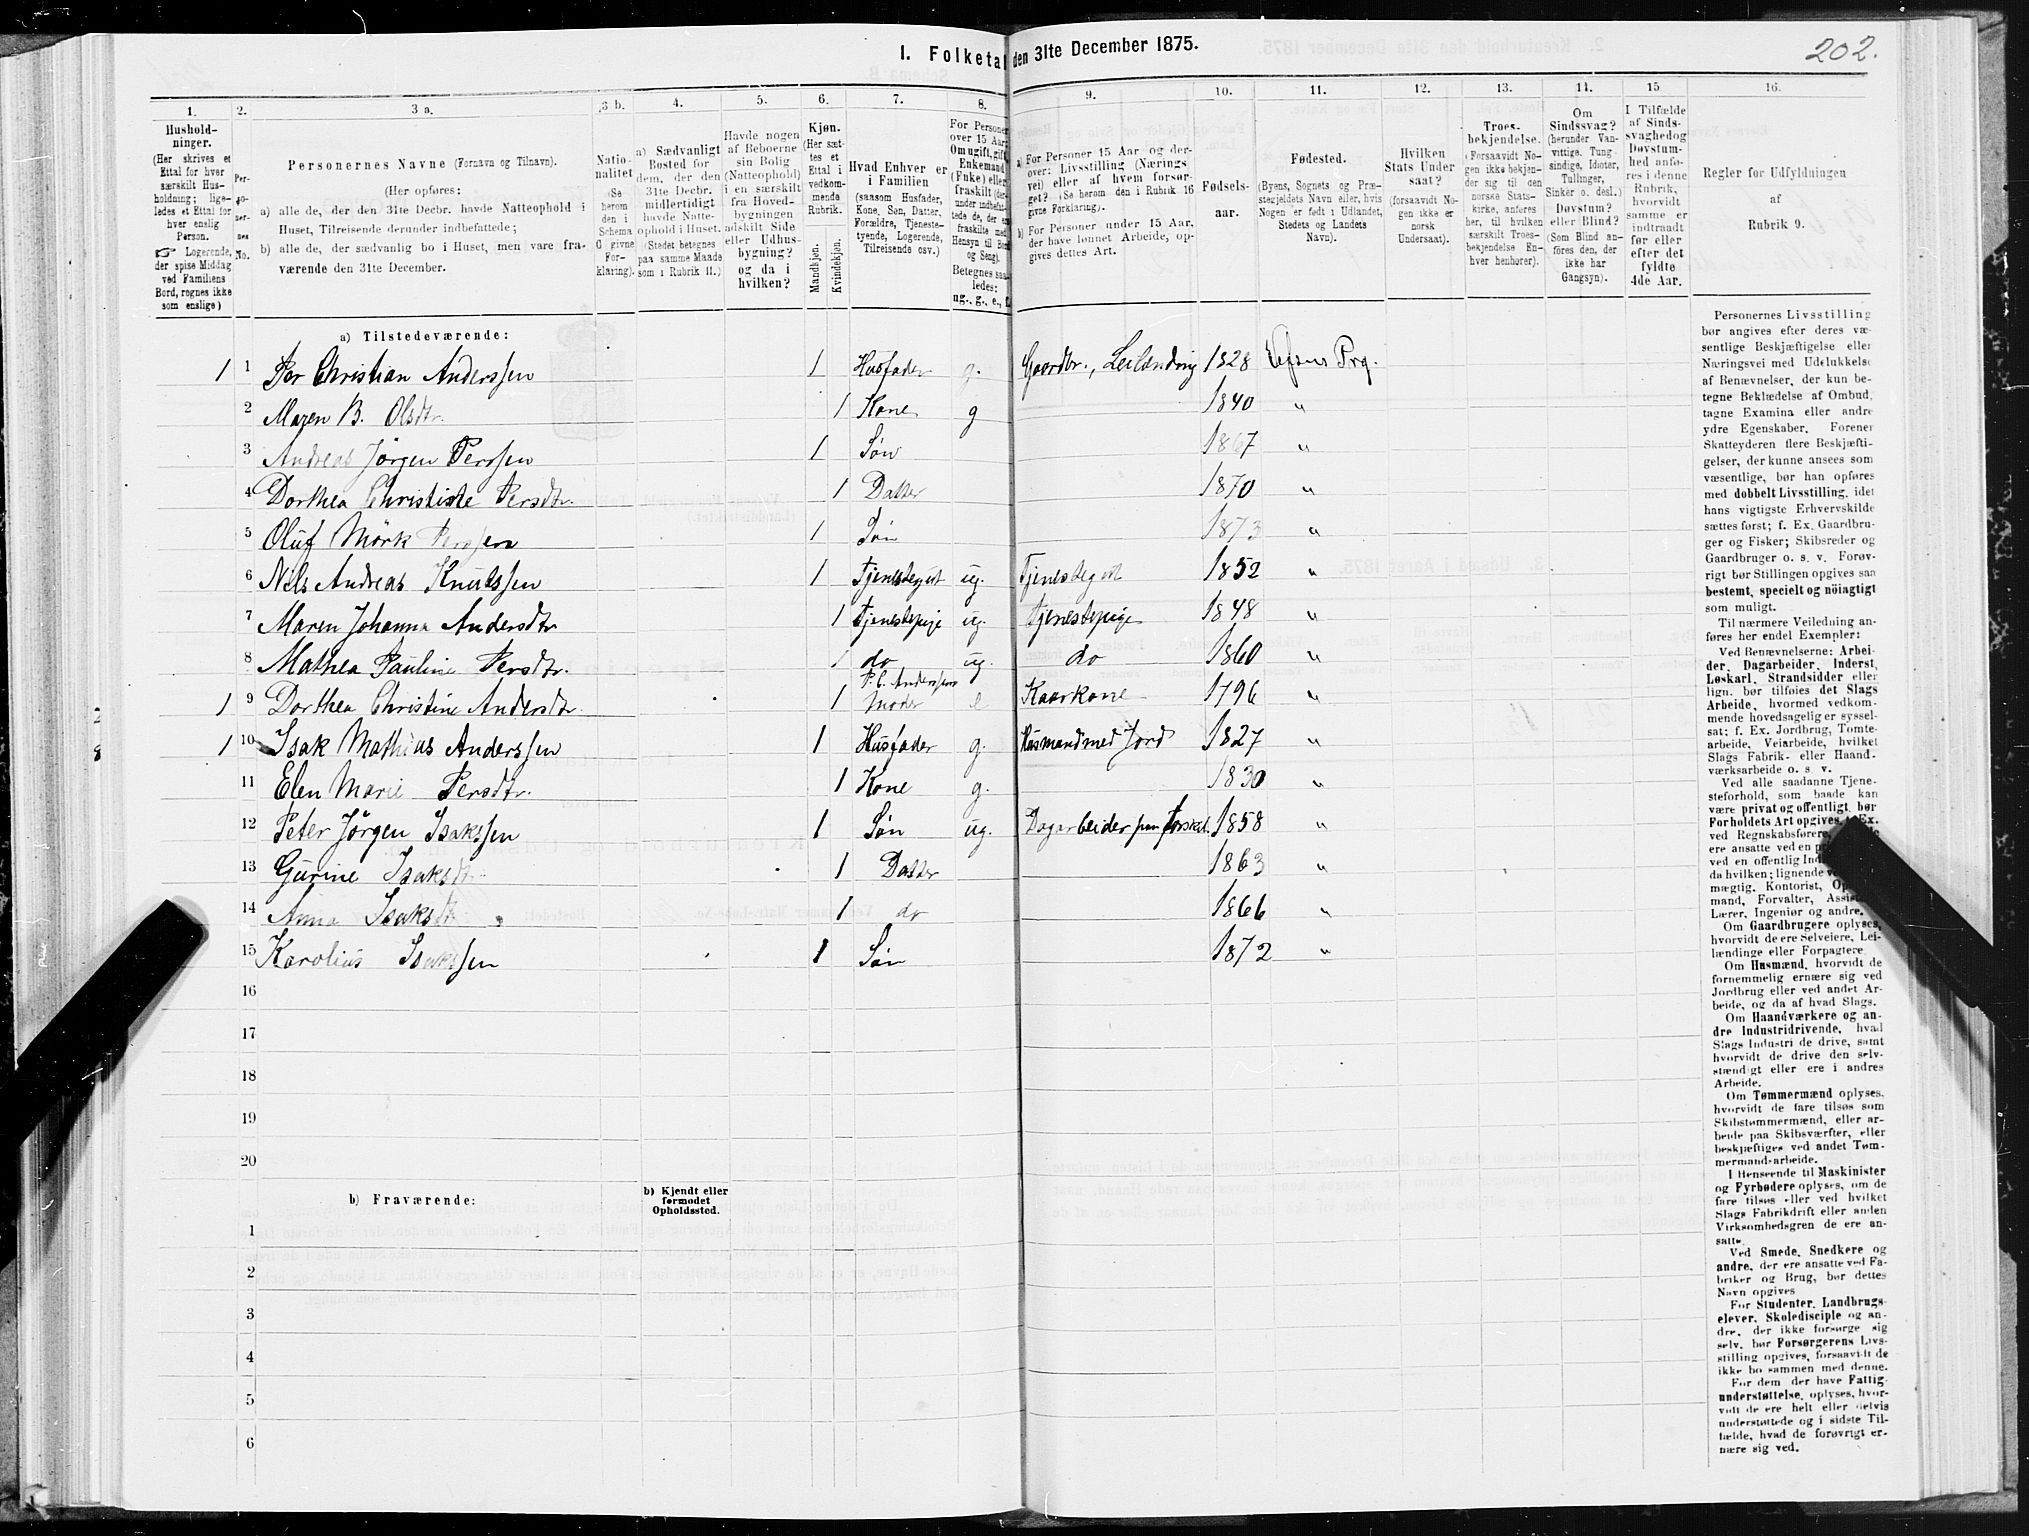 1. Folketal den 31te December 1875.
202.
1.
Hushold-
ninger.
(Her skrives et
Ettal for hver
særskilt Hus-
holdning; lige-
ledes et Ettal for
hver enslig
Person.
☞ Logerende,
der spise Middag
ved Familiens
Bord, regnes ikke
som enslige)
2.
Per-
so-
ner-
nes
No.
3 a.
Personernes Navne (Fornavn og Tilnavn).
(Her opføres:
a) alle de, der den 31te Decbr. havde Natteophold i
Huset, Tilreisende derunder indbefattede;
b) alle de, der sædvanlig bo i Huset, men vare fra-
værende den 31te December.
3 b.
Natio-
nalitet
(Se
herom
den i
Schema
O givne
For-
klaring).
4.
a) Sædvanligt
Bosted for
dem, der den
31te Decbr.
midlertidigt
havde Natte-
ophold i Huset.
(Stedet betegnes
paa samme Maade
som i Rubrik 11.)
5.
Havde nogen
af Beboerne
sin Bolig
(Natteophold)
i en særskilt
fra Hoved-
bygningen
adskilt Side
eller Udhus-
bygning?
og da i
hvilken?
6.
Kjøn.
(Her sæt-
tes et
Ettal i
vedkom-
mende
Rubrik.
Mandkjøn.
Kvindekjøn.
7.
Hvad Enhver er
i Familien
(saasom Husfader,
Kone, Søn, Datter,
Forældre, Tjeneste-
tyende, Logerende,
Tilreisende osv.)
8.
For Personer
over 15 Aar:
Om ugift, gift,
Enkemand
(Enke) eller
fraskilt (der-
under indbefat-
tede de, der ere
fraskilte med
Hensyn til Bord
og Seng).
Betegnes saa-
ledes:
ug., g., e., f.
9.
a) For Personer 15 Aar og der-
over: Livsstilling (Nærings-
vei) eller af hvem forsør-
get? (Se herom den i Rubrik 16
givne Forklaring).
b) For Personer under 15 Aar,
der have lønnet Arbeide, op-
gives dettes Art.
10.
Fødsels-
aar.
11.
Fødested.
(Byens, Sognets og Præ-
stegjeldets Navn eller, hvis
Nogen er født i Udlandet,
Stedets og Landets
Navn).
12.
Hvilken
Stats Under
saat?
(forsaavidt No-
gen ikke er
norsk
Undersaat).
13.
Troes-
bekjendelse.
(Forsaavidt No-
gen ikke bekjen-
der sig til den
norske Stats-
kirke, anføres
her, til hvilken
særskilt Troes-
bekjendelse En-
hver henhører).
14.
Om
Sindssvag?
(herunder Van-
vittige, Tung-
sindige, Idioter,
Tullinger,
Sinker o. desl.)
Døvstum?
eller Blind?
(Som Blind an-
føres den, der
ikke har
Gangsyn).
15
I Tilfælde
af Sinds-
svaghed og
Døvstum-
hed anfø-
res i denne
Rubrik,
hvorvidt
samme er
indtraadt
før eller
efter det
fyldte
4de Aar.
16.
Regler for Udfyldningen
af
Rubrik 9.
a) Tilstedeværende:
1 1 Per Christian Anderssen 1 Husfader g. Gaardbr., Leilænding 1828 Vefsens Prg.
2 Maren B. Olsdtr. 1 Kone g 1840 "
3 Andreas Jørgen Perssen 1 Søn 1867 "
4 Dorthea Christine Persdtr. 1 Datter 1870 "
5 Oluf Mörk Perssen 1 Søn 1873 "
6 Nils Andreas Knutssen 1 Tjenestegut ug. Tjenestegut 1852 "
7 Maren Johanna Andersdtr 1 Tjenestepige ug. Tjenestepige 1848 "
8 Mathea Pauline Persdtr. 1 do ug. do 1860 "
1 9 Dorthea Christine Andersdtr. 1 P. C. Anderssens Moder e Kaarkone 1796 "
1 10 Isak Mathias Anderssen 1 Husfader g. Husmand med Jord 1827 "
11 Elen Marie Persdtr. 1 Kone g. 1830 "
12 Peter Jørgen Isakssen 1 Søn ug. Dagarbeider 1858 "
13 Gurine Isaksdtr 1 Datter 1863 "
14 Anna Isaksdtr 1 do 1866 "
15 Karolius Isakssen 1 Søn 1872 "
16
17
18
19
20
b) Fraværende:
b) Kjendt eller
formodet
Opholdssted.
1
2
3
4
5
6
Personernes Livsstilling
bør angives efter deres væ-
sentlige Beskjæftigelse eller
Næringsvei med Udelukkelse
af Benævnelser, der kun be-
tegne Beklædelse af Ombud,
tagne Examina eller andre
ydre Egenskaber. Forener
Skatteyderen flere Beskjæfti-
gelser, der kunne ansees som
væsentlige, bør han opføres
med dobbelt Livsstilling, idet
hans vigtigste Erhvervskilde
sættes først; f. Ex. Gaardbru-
ger og Fisker; Skibsreder og
Gaardbruger o. s. v. Forøv-
rigt bør Stillingen opgives saa
bestemt, specielt og nöiagtigt
som muligt.
Til nærmere Veiledning an-
føres her endel Exempler:
Ved Benævnelserne: Arbei-
der, Dagarbeider, Inderst,
Løskarl, Strandsidder eller
lign. bør tilføies det Slags
Arbeide, hvormed vedkom-
mende hovedsagelig er syssel-
sat; f. Ex. Jordbrug, Tomte-
arbeide, Veiarbeide, hvilket
Slags Fabrik- eller Haand-
værksarbeide o. s. v.
Ved alle saadane Tjene-
steforhold, som baade kan
være privat og offentligt, bør
Forholdets Art opgives, f. Ex.
ved Regnskabsførere,
ere ansatte ved en
ved en offentlig
da hvilken; lignende
mægtig, Kontorist,
mand, Forvalter,
Lærer, Ingeniør og andre.
Om Gaardbrugere oplyses,
hvorvidt de ere Selveiere, Lei-
lændinge eller Forpagtere.
Om Husmænd, hvorvidt de
fornemmelig ernære sig ved
Jordbrug eller ved andet Ar-
beide, og da af hvad Slags.
Om Haandværkere og an-
dre Industridrivende, hvad
Slags Industri de drive, samt
hvorvidt de drive den selv-
stændigt eller ere i andres
Arbeide.
Om Tømmermænd oplyses,
hvorvidt de fare tilsøs som
Skibstømmermænd, eller ar-
beide paa Skibsværfter, eller
beskjæftiges ved andet Tøm-
mermandsarbeide.
I Henseende til Maskinister
og Fyrbødere oplyses, om de
fare tilsøs eller ved hvilket
Slags Fabrikdrift eller anden
Virksomhedsgren de ere an-
satte.
Ved Smede, Snedkere og
andre, der ere ansatte ved Fa-
briker og Brug, bør dettes
Navn opgives
For Studenter, Landbrugs-
elever, Skoledisciple og an-
dre, der ikke forsørge sig
selv, bør Forsørgerens Livs-
stilling opgives, forsaavidt de
ikke bo sammen med denne.
For dem der have Fattig-
understøttelse, oplyses, hvor-
vidt de ere helt eller delvis
understøttede og i sidste Til-
fælde, hvad de forøvrigt er-
nære sig ved.